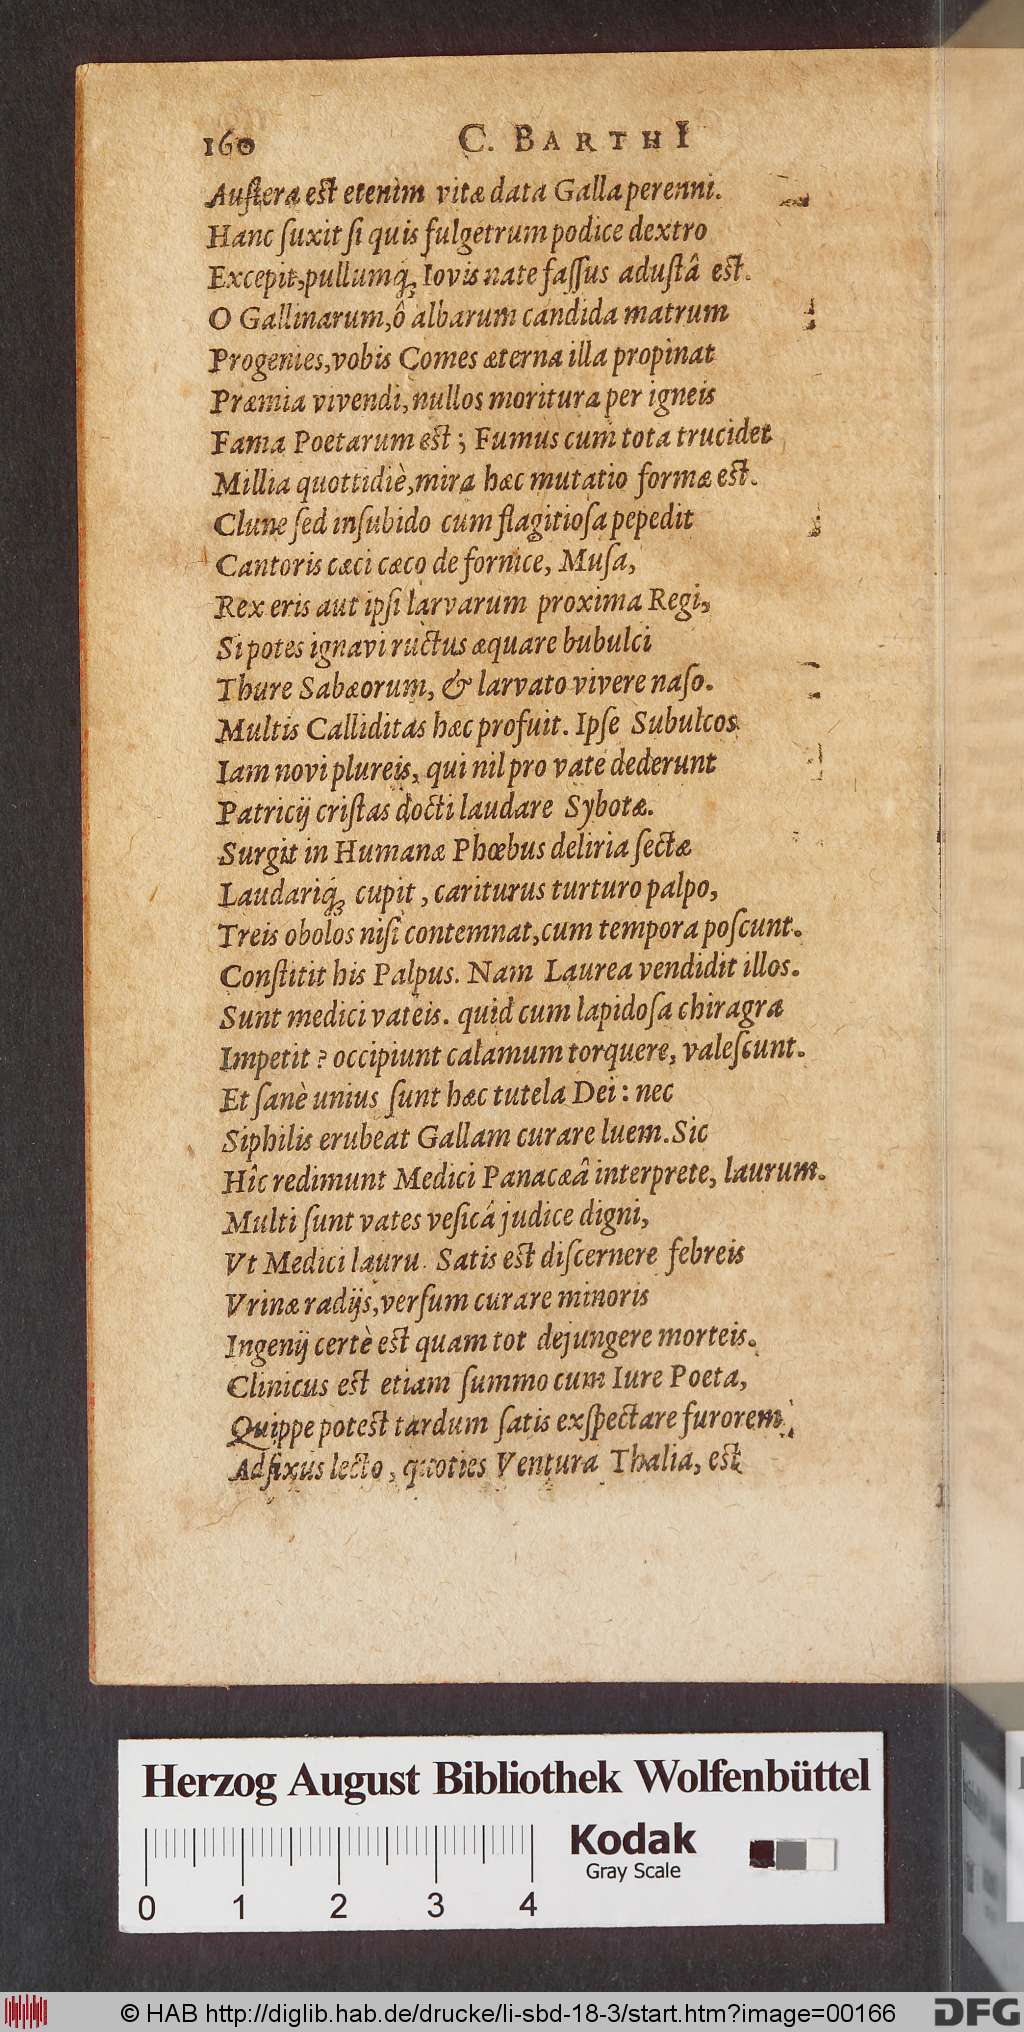 160 C. BARTHI
Austera est etenim vitæ data Galla perenni.
Hanc suxit si quis fulgetrum podice dextro
Excepit, pullumq; Iovis nate fassus adustâ est.
O Gallinarum, ô albarum candida matrum
Progenies, vobis Comes æterna illa propinat
Præmia vivendi, nullos moritura per igneis
Fama Poetarum est; Fumus cum tota trucidet
Millia quottidiè, mira hæc mutatio formæ est.
Clune sed insubido cum flagitiosa pepedit
Cantoris cæci cæco de fornice, Musa,
Rex eris aut ipsi larvarum proxima Regi,
Si potes ignavi ructus æquare bubulci
Thure Sabæorum, & larvato vivere naso.
Multis Calliditas hæc profuit. Ipse Subulcos
Iam novi plureis, qui nil pro vate dederunt
Patricij cristas docti laudare Sybotæ.
Surgit in Humanæ Phœbus deliria sectæ
Laudariq; cupit, cariturus turturo palpo,
Treis obolos nisi contemnat, cum tempora poscunt.
Constitit his Palpus. Nam Laurea vendidit illos.
Sunt medici vateis. quid cum lapidosa chiragræ
Impetit? occipiunt calamum torquere, valescunt.
Et sanè unius sunt hæc tutela Dei: nec
Siphilis erubeat Gallam curare luem. Sic
Hîc redimunt Medici Panacæâ interprete, laurum.
Multi sunt vates vesicá judice digni,
Vt Medici lauru. Satis est discernere febreis
Vrinæ radijs, versum curare minoris
Ingenij certè est quam tot dejungere morteis.
Clinicus est etiam summo cum Iure Poeta,
Quippe potest tardum satis exspectare furorem,
Adfixus lecto, quoties Ventura Thalia, est
Herzog August Bibliothek Wolfenbüttel
Kodak
Gray Scale
0 1 2 3 4
© HAB http://diglib.hab.de/drucke/li-sbd-18-3/start.htm?image=00166
DFG